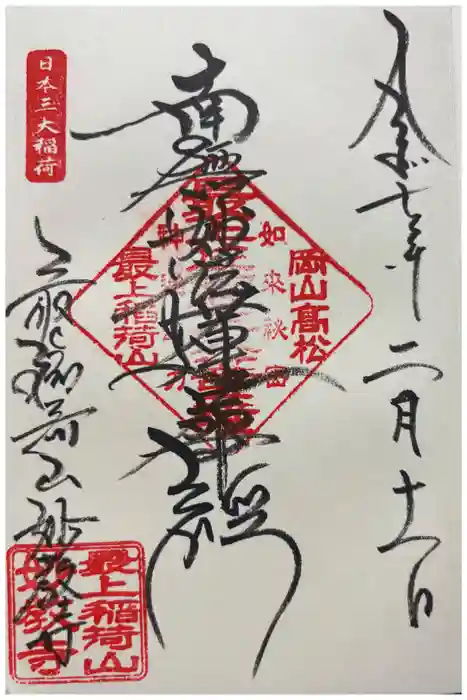 令和七年二月十一日
岡山高松
如来秘密
南無妙法蓮華経
神通之力
最上稲荷山
日本三大稲荷
最上稲荷山妙教寺
最上稲荷山
妙教寺